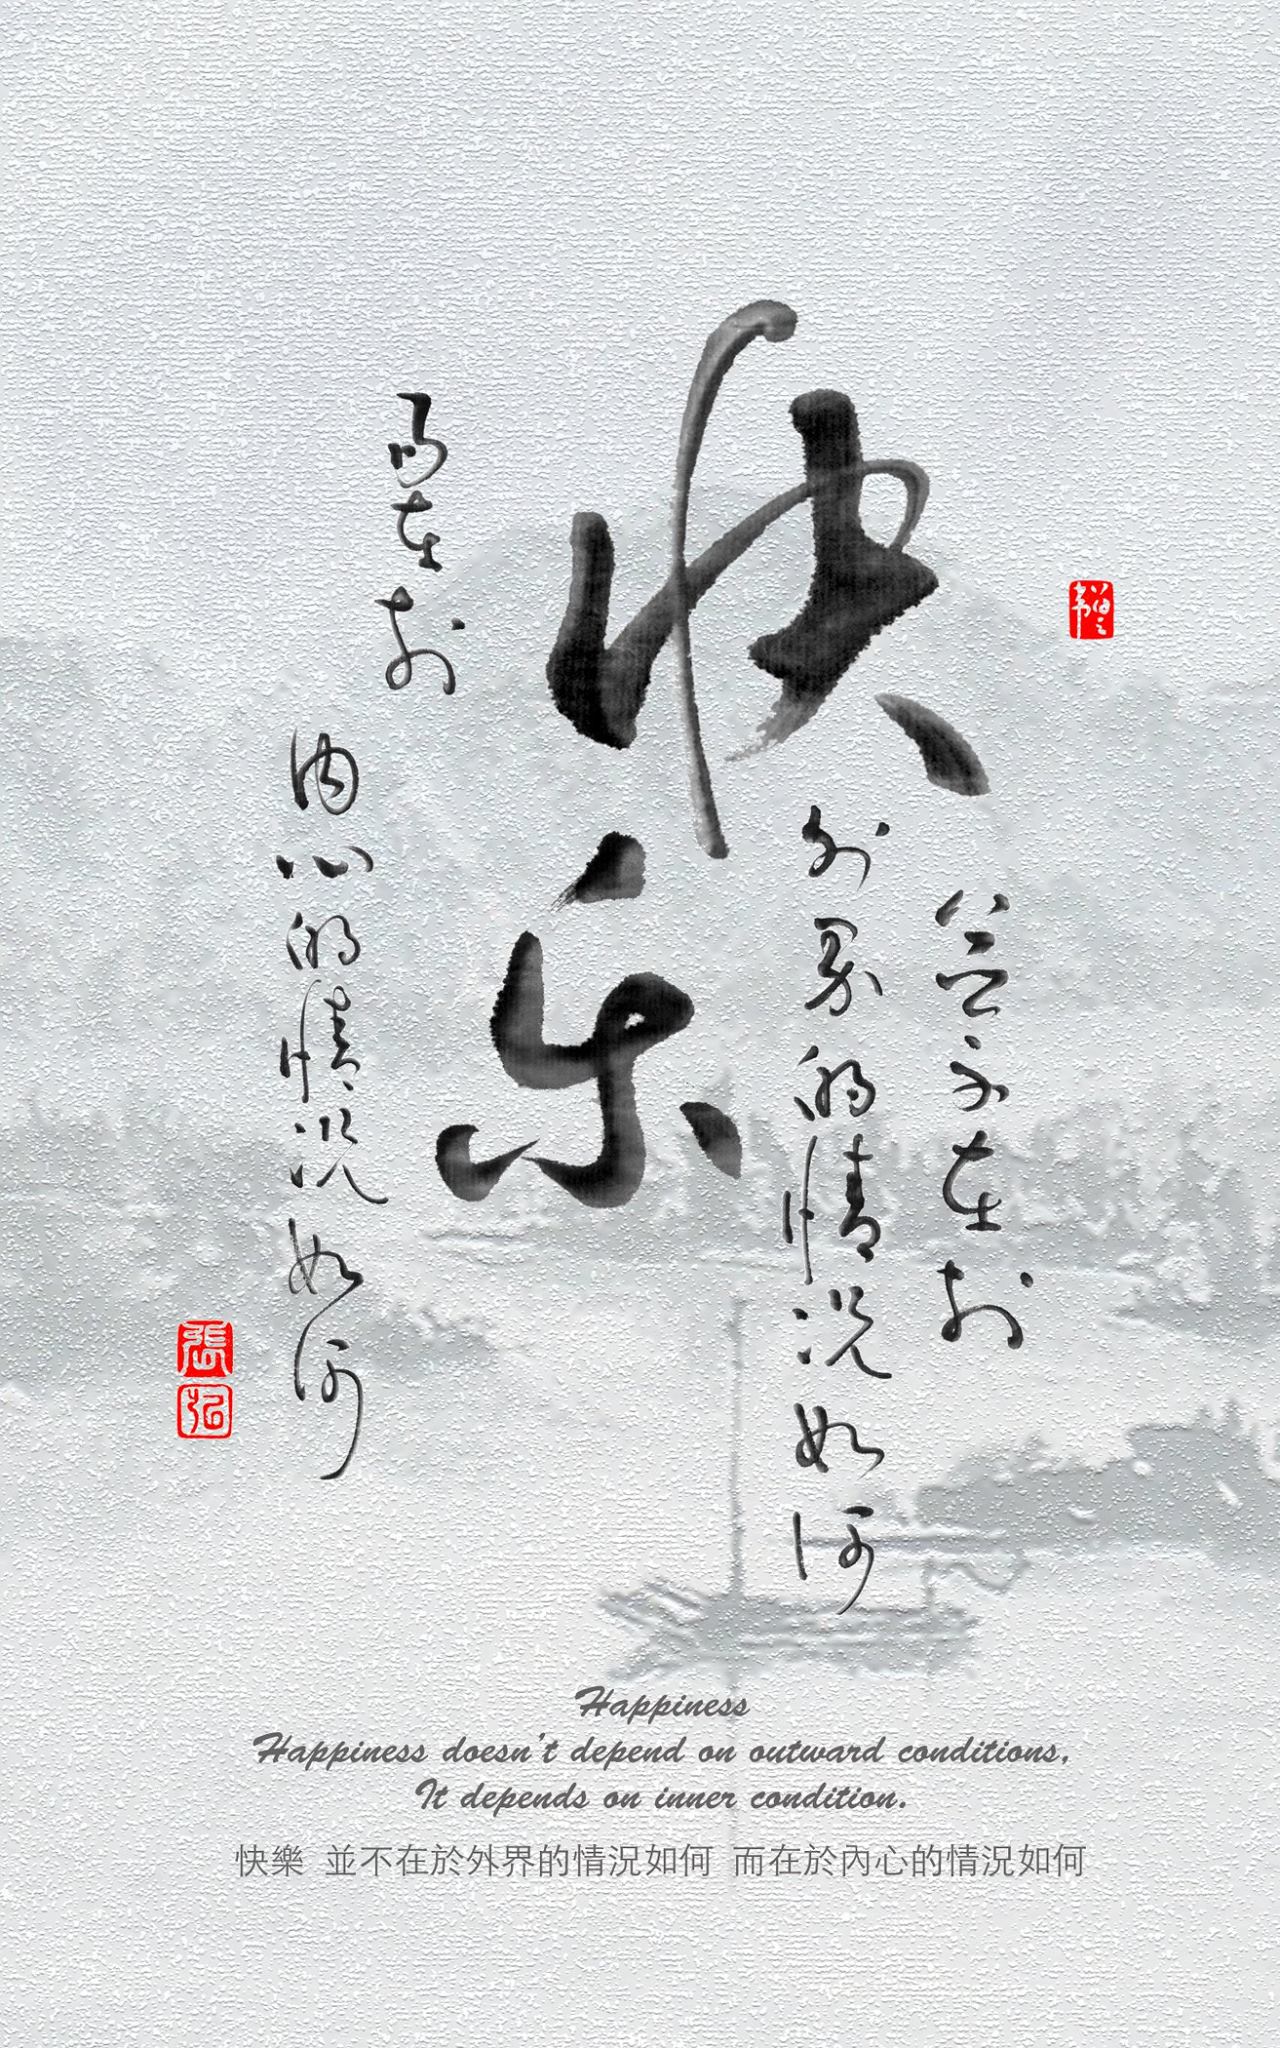 快乐
並不在於
外界的情況如何
而在於
内心的情況如何
張
弘
Happiness
Happiness doesn't depend on outward conditions,
It depends on inner condition.
快樂 並不在於外界的情況如何 而在於內心的情況如何